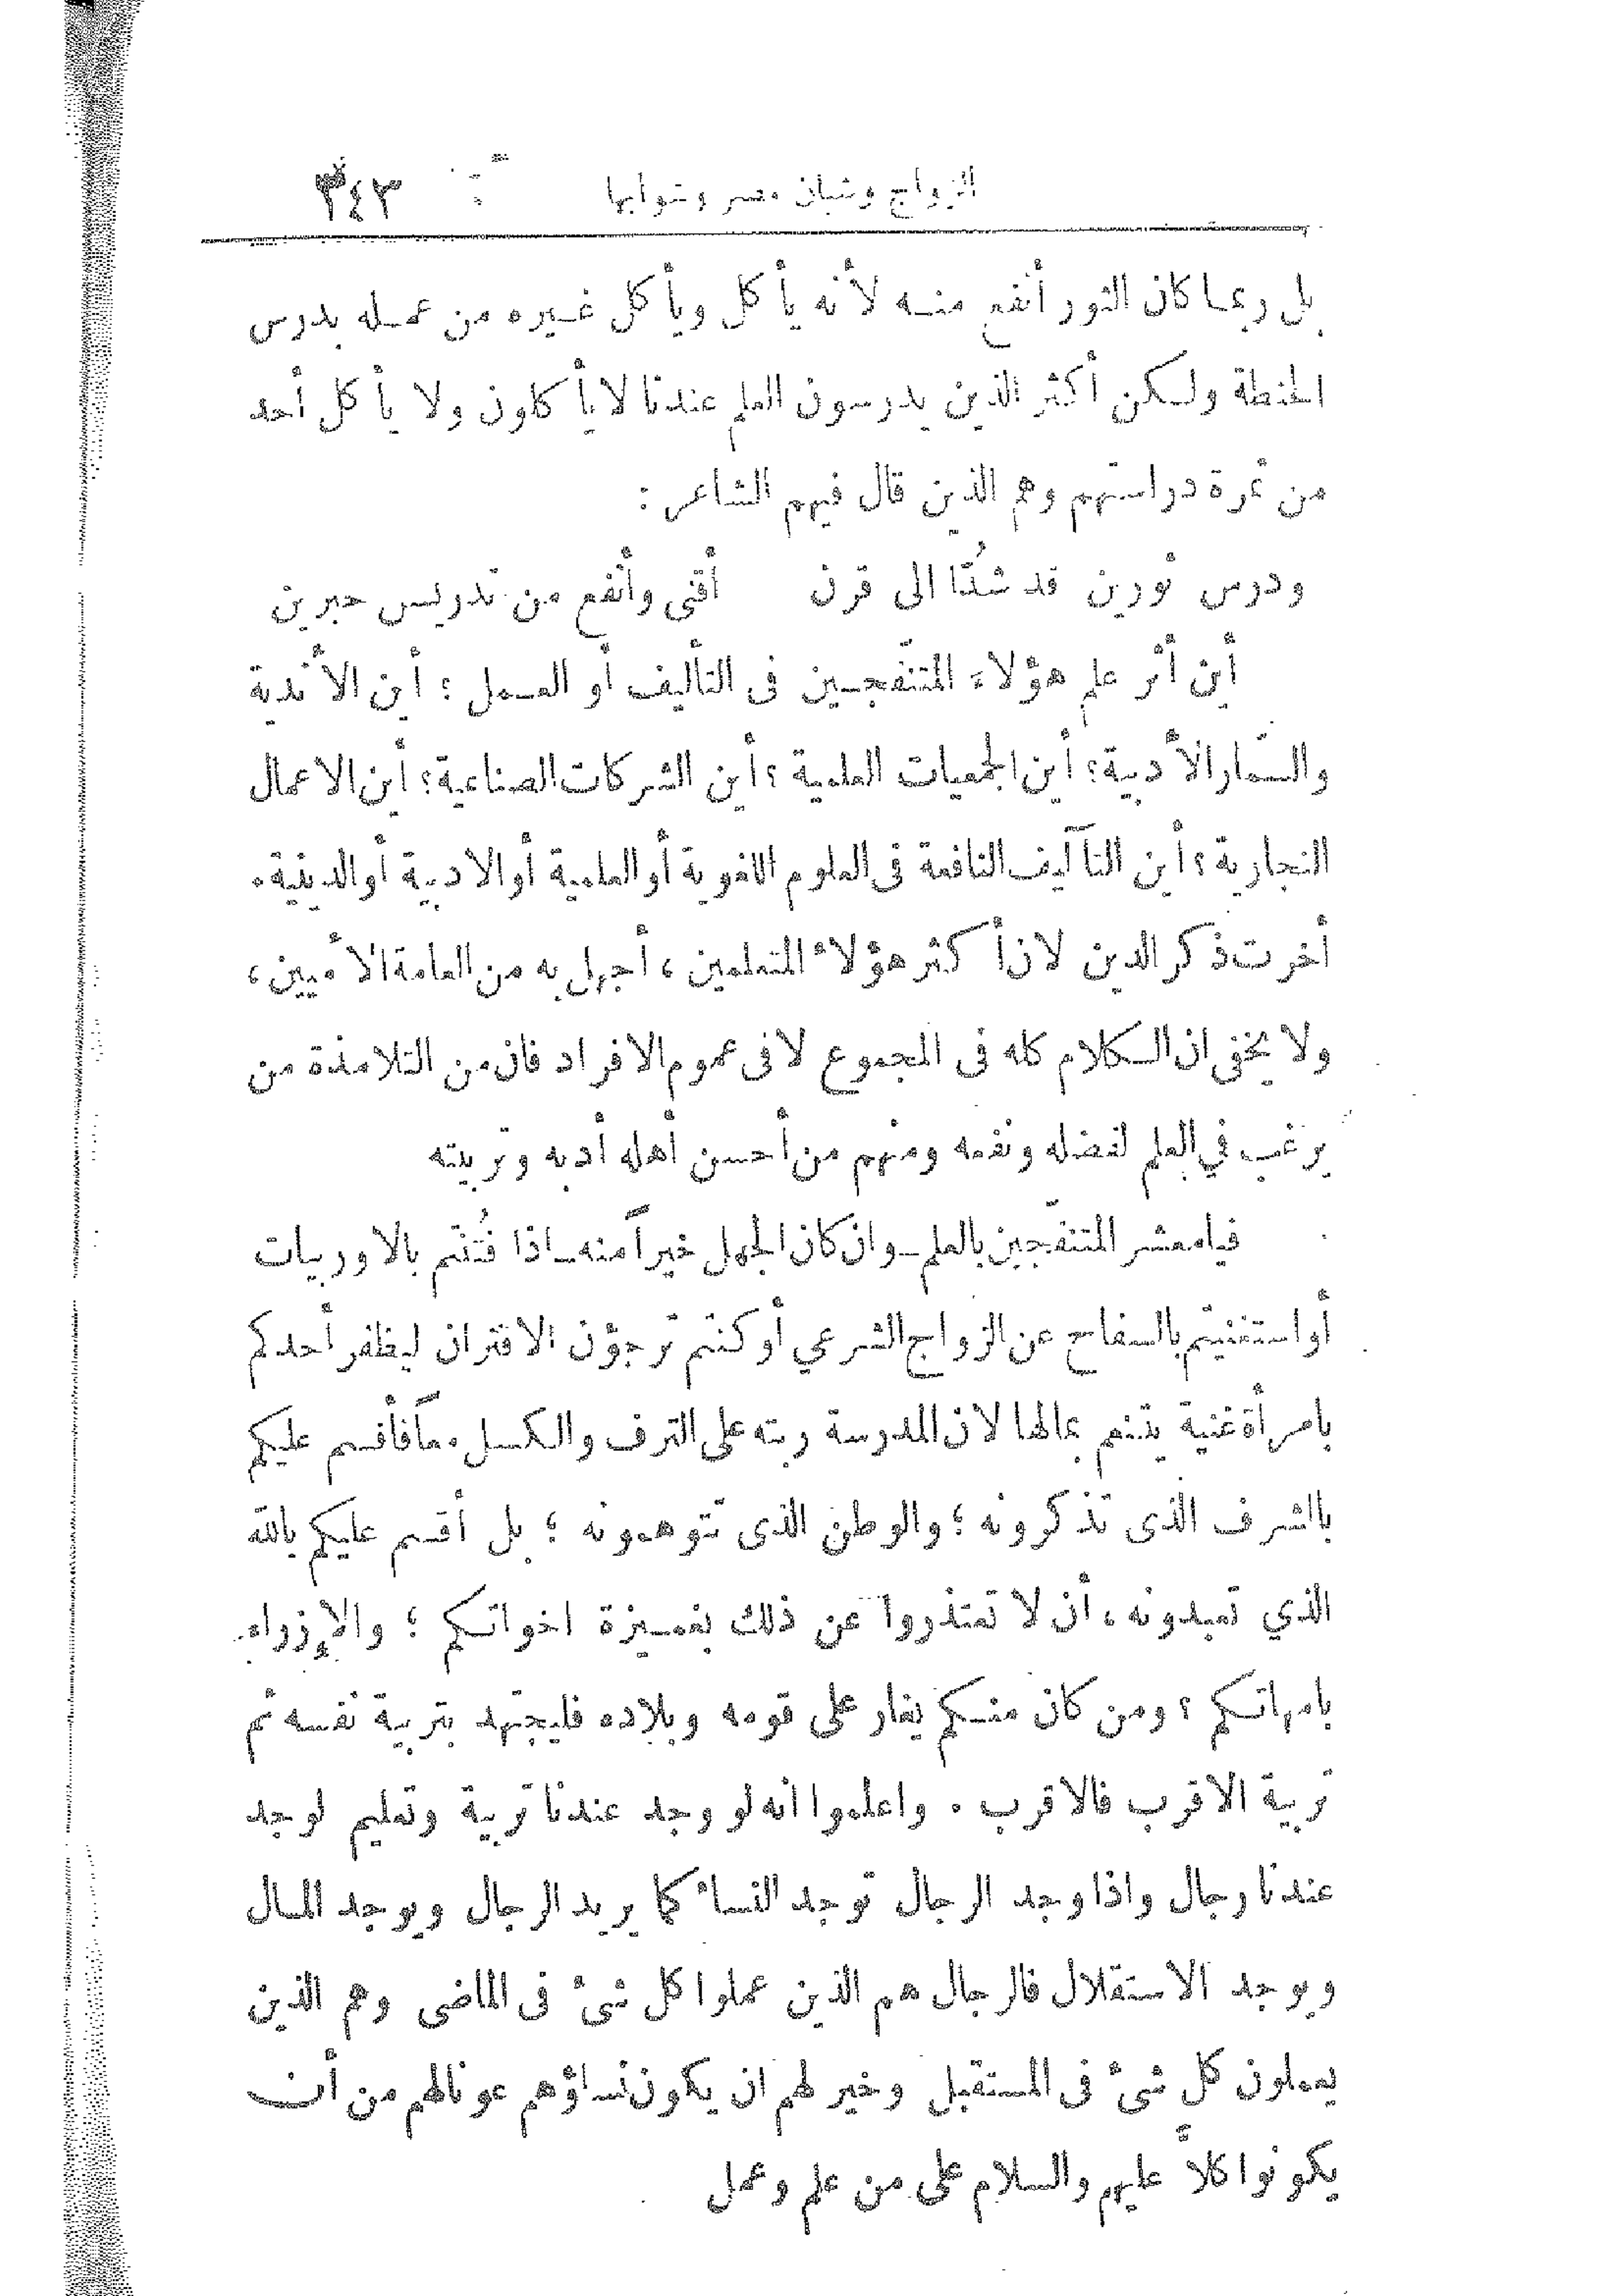 الزواج وشبان مصر وشوابها ٣٤٣
بل ربما كان الثور أنفع منه لأنه يأكل ويأكل غيره من عمله بدرس
الحنطة ولكن أكثر الذين يدرسون العلم عندنا لا يأكلون ولا يأكل أحد
من ثمرة دراستهم وهم الذين قال فيهم الشاعر :
ودرس ثورين قد شُدَّا الى قرن أقنى وأنفع من تدريس حبرين
أين أثر علم هؤلاء المتنفّجين في التأليف أو العمل ؛ أين الأندية
والسمار الأدبية؟ أين الجمعيات العلمية ؟ أين الشركات الصناعية؟ أين الاعمال
التجارية ؟ أين التآليف النافعة فى العلوم اللغوية أو العلمية أو الادبية أو الدينية.
أخرت ذكر الدين لان أكثر هؤلاء المتعلمين ، أجهل به من العامة الأميين ،
ولا يخفى ان الكلام كله فى المجموع لا فى عموم الافراد فان من التلامذة من
يرغب في العلم لفضله ونفعه ومنهم من أحسن أهله أدبه وتربيته
فيامعشر المتنفّجين بالعلم ــ وان كان الجهل خيراً منه ــ اذا فُتنْتم بالاوربيات
أو استغنيتم بالسفاح عن الزواج الشرعي أو كنتم ترجؤن الاقتران ليظفر أحدكم
بامرأة غنية يتنعم بمالها لان المدرسة ربته على الترف والكسل معاً فأقسم عليكم
بالشرف الذى تذكرونه ؛ والوطن الذى تتوهمونه ؛ بل أقسم عليكم بالله
الذي تعبدونه ، أن لا تعتذروا عن ذلك بغميزة اخواتكم ؛ والإزراء
بامهاتكم ؛ ومن كان منكم يغار على قومه وبلاده فليجتهد بتربية نفسه ثم
تربية الاقرب فالاقرب . واعلموا انه لو وجد عندنا تربية وتعليم لوجد
عندنا رجال واذا وجد الرجال توجد النساء كما يريد الرجال ويوجد المال
ويوجد الاستقلال فالرجال هم الذين عملوا كل شئ فى الماضى وهم الذين
يعملون كل شئ فى المستقبل وخير لهم ان يكون نساؤهم عونا لهم من أن
يكونوا كلاًّ عليهم والسلام على من علم وعمل